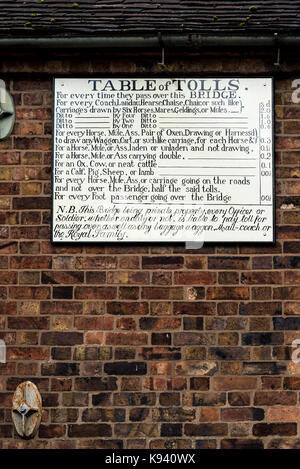 TABLE of TOLLS.
For every time they pass over this BRIDGE.
For every Coach, Landau, Hearse, Chaise, Chair, or such like
Carriages drawn by Six Horses, Mares, Geldings, or Mules
Ditto by Four Ditto
Ditto by Two Ditto
Ditto by One Ditto
For every Horse, Mule, Ass, Pair of Oxen, Drawing or Harness'd
to draw any Waggon, Cart, or such like carriage, for each Horse &c.
For a Horse, Mule, or Ass, laden or unladen and not drawing
For a Horse, Mule, or Ass carrying double
For an Ox, Cow, or neat cattle
For a Calf, Pig, Sheep, or lamb
For every Horse, Mule, Ass, or carriage going on the roads
and not over the Bridge, half the said tolls.
For every Foot passenger going over the Bridge
N.B. This Bridge being private property, every Officer or
Soldier, whether on duty or not, is liable to pay toll for
passing over, as well as any baggage waggon, Mail-coach or
the Royal Family.
alamy
K940WX